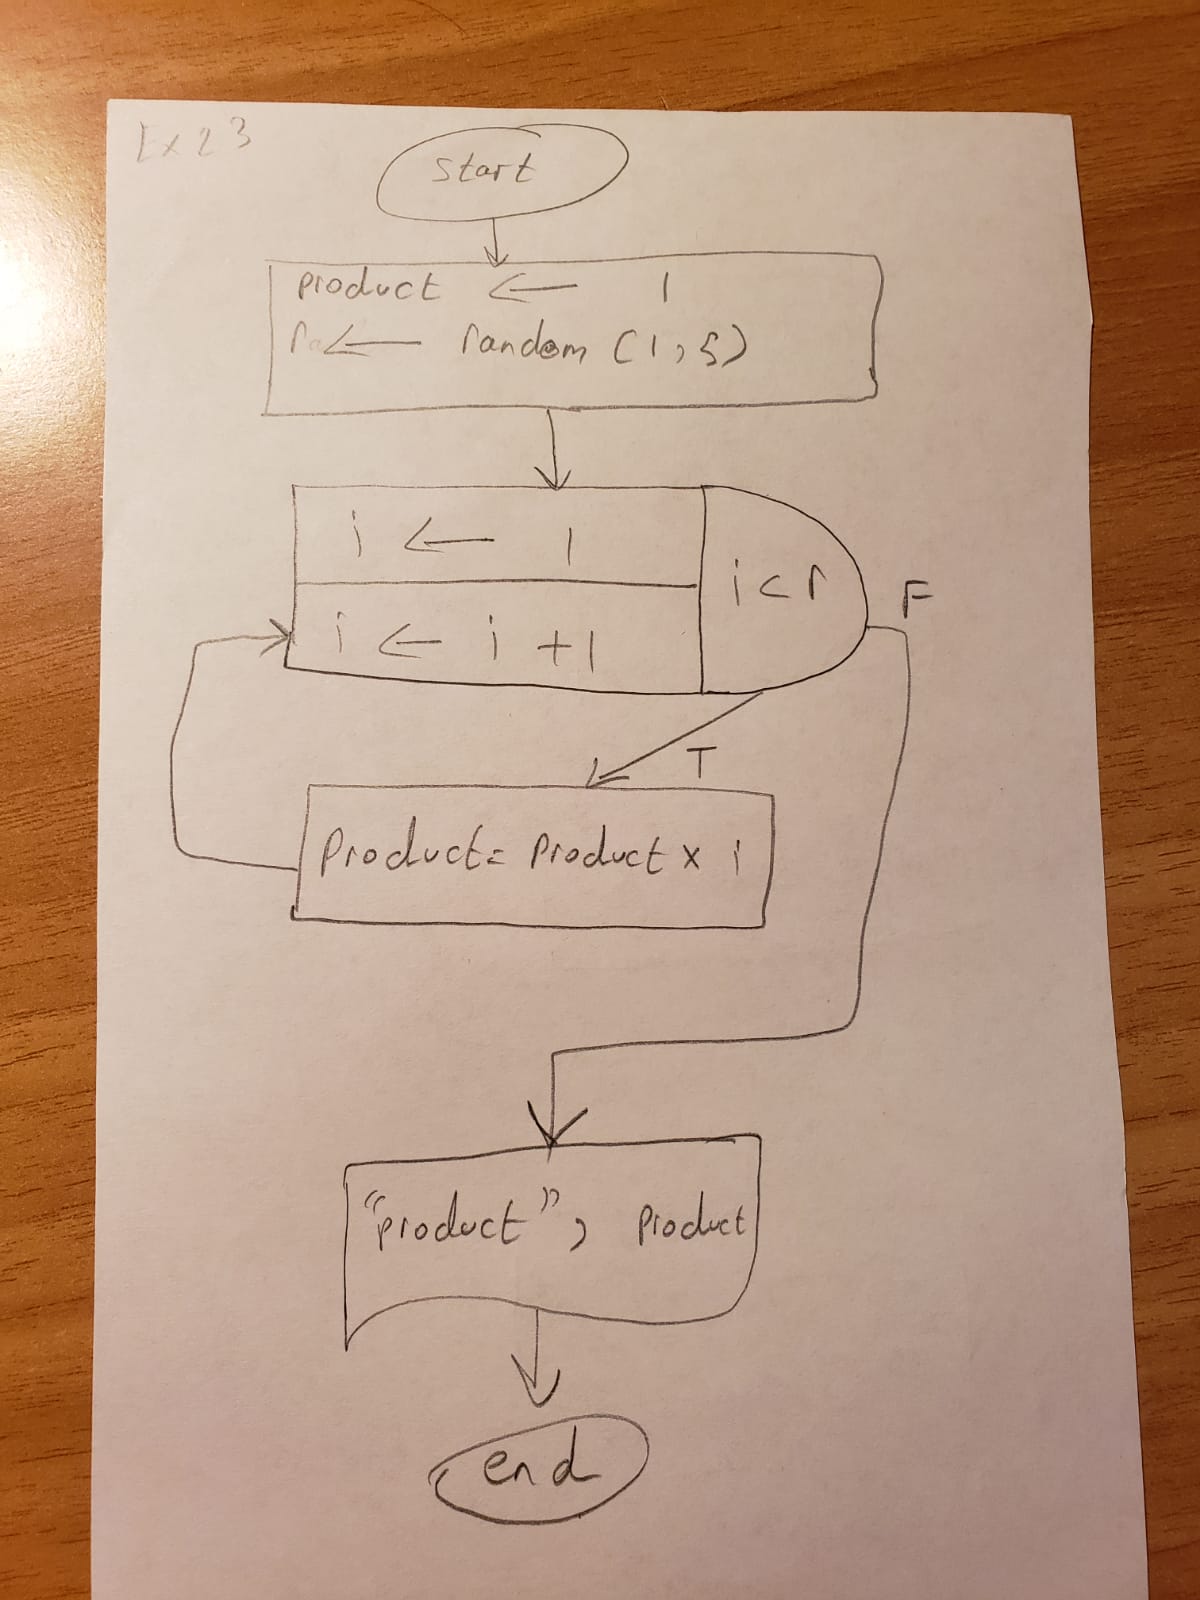 Ex 23
start
product ← 1
r ← random (1,5)
i ← 1
i < r
F
i ← i +1
T
Product = Product x i
"product", Product
end